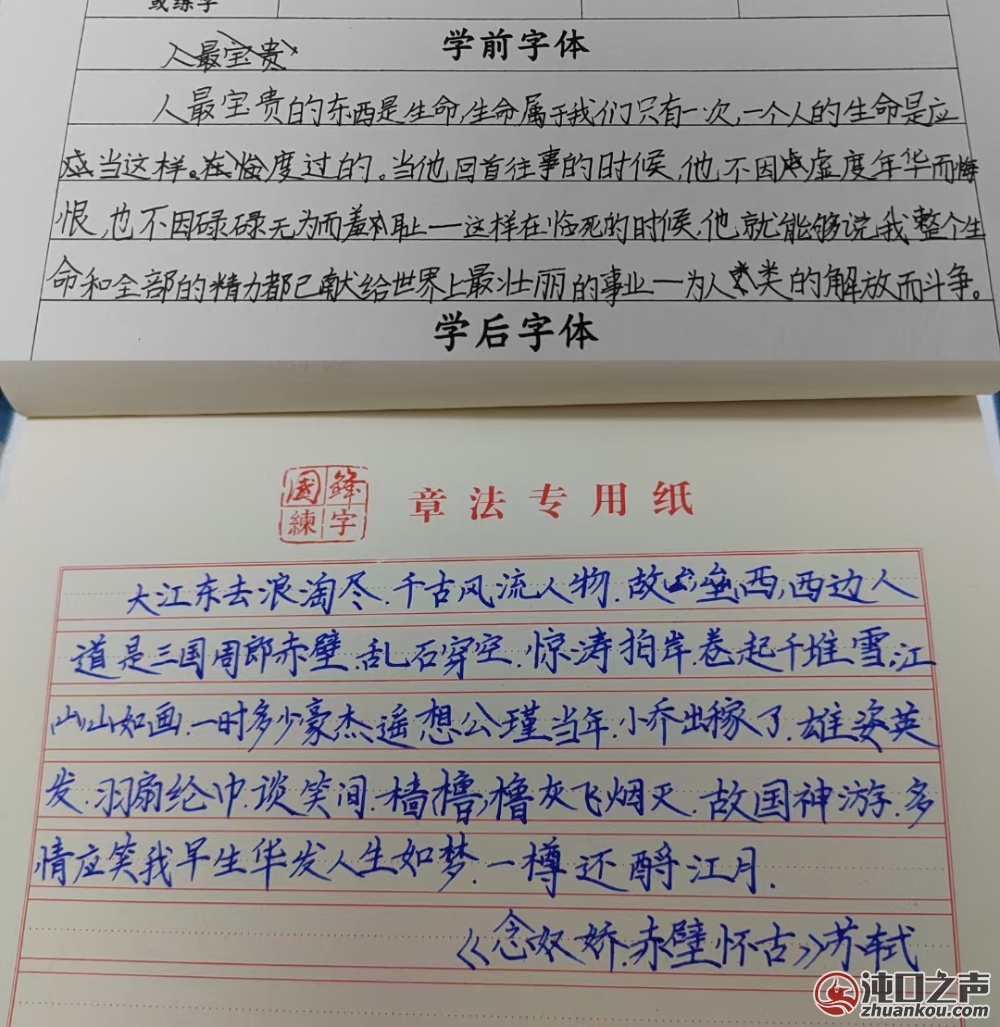 或练字
学前字体
人最宝贵
人最宝贵的东西是生命,生命属于我们只有一次,一个人的生命是应
当这样。在临度过的。当他回首往事的时候,他不因虚度年华而悔
恨,也不因碌碌无为而羞耻——这样在临死的时候,他就能够说,我整个生
命和全部的精力都已献给世界上最壮丽的事业——为人类的解放而斗争。
学后字体
国锋
練字
章法专用纸
大江东去浪淘尽.千古风流人物.故垒西,西边人
道是三国周郎赤壁.乱石穿空.惊涛拍岸.卷起千堆雪.江
山山如画.一时多少豪杰.遥想公瑾当年.小乔出稼了.雄姿英
发.羽扇纶巾.谈笑间.樯橹,橹灰飞烟灭.故国神游.多
情应笑我早生华发人生如梦.一樽还酹江月.
《念奴娇.赤壁怀古》苏轼
沌口之声
zhuankou.com